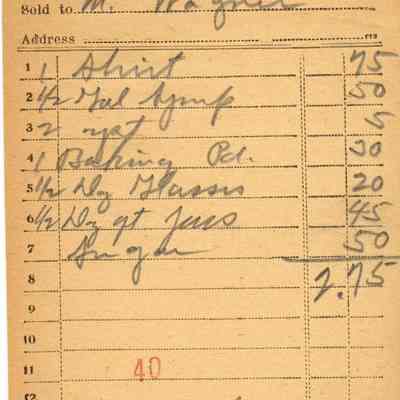 Sold to M. Wagner
Address
1 1 Shirt 75
2 1/2 Gal Syrup 50
3 2 yst 5
4 1 Baking Pd. 30
5 1/2 Dz Glasses 20
6 1/2 Dz qt Jars 45
7 Sugar 50
8 2.75
9
10
11 40
12